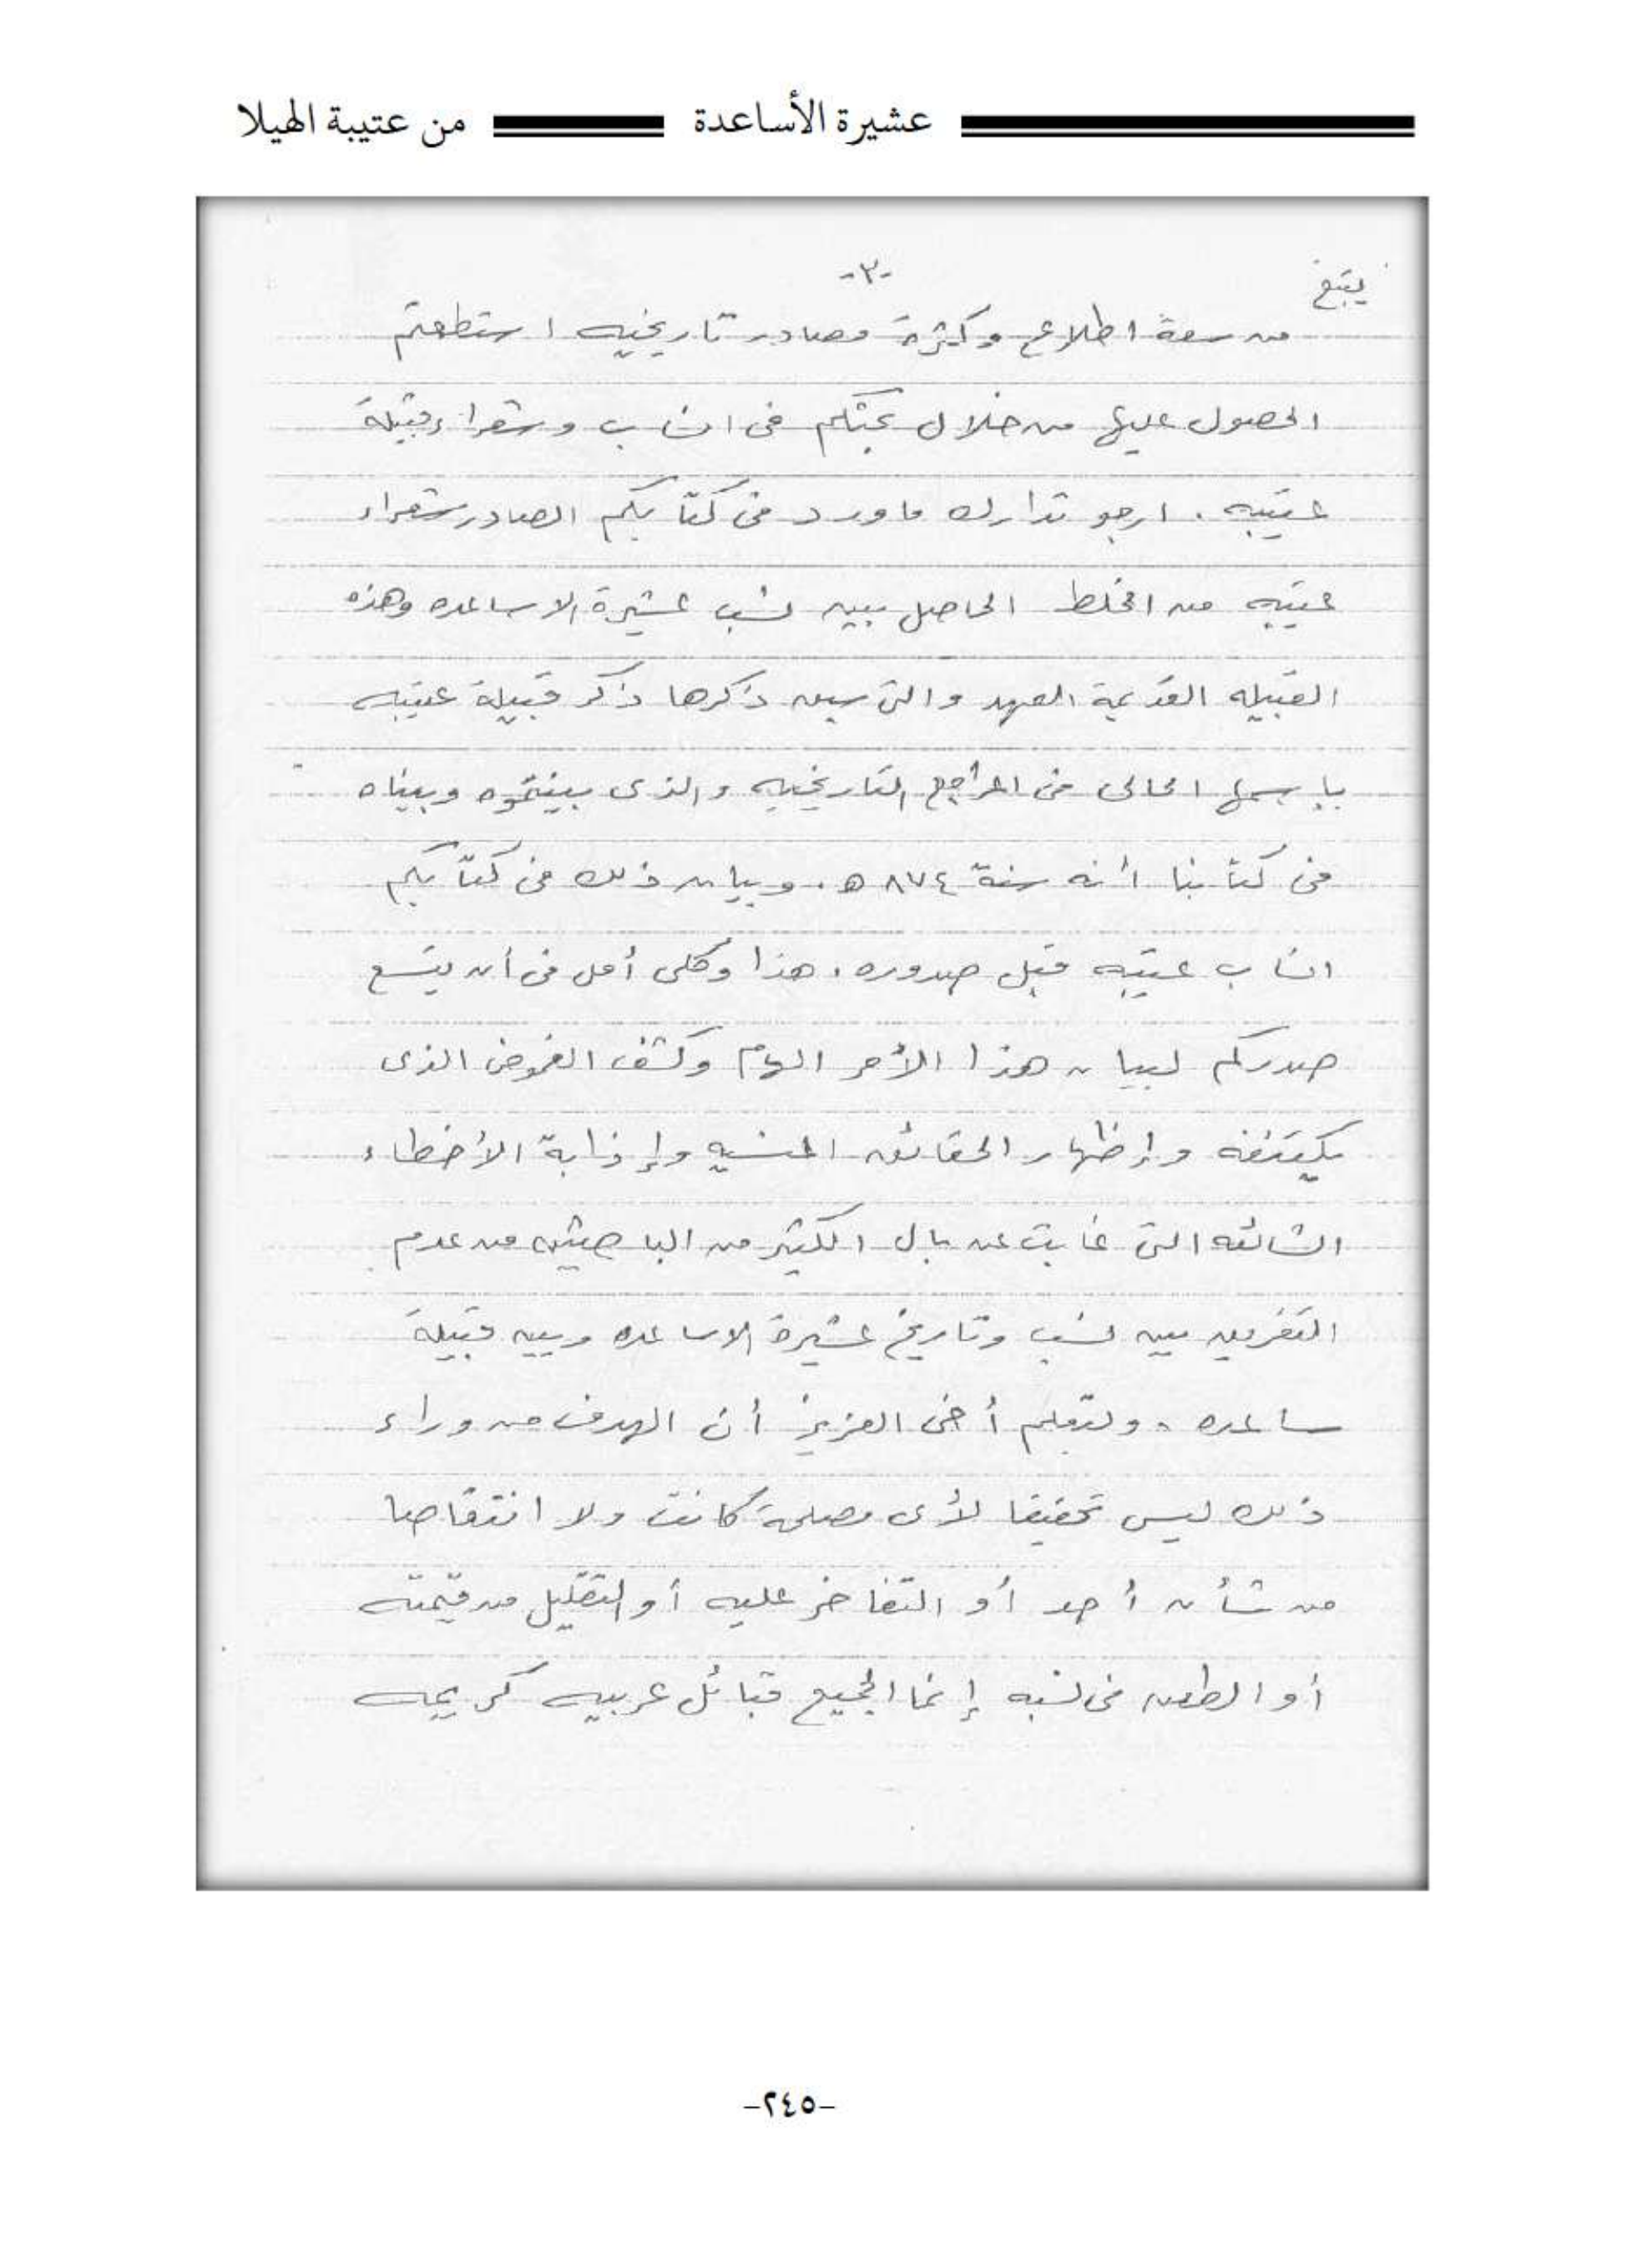 عشيرة الأساعدة من عتيبة الهيلا
-٣-
يتبع
من سعة اطلاع وكثرة مصادر تاريخيه استطعتم
الحصول عليها من خلال بحثكم في انساب وشعراء قبيلة
عتيبه . ارجو تدارك ما ورد في كتابكم الصادر شعراء
عتيبه من الخلط الحاصل بين نسب عشيرة الاساعده وهذه
القبيله القديمة العهد والتي سبق ذكرها ذكر قبيلة عتيبه
بإسمها الحالي في المراجع التاريخيه والذي بينتموه وبيناه
في كتابنا أنه سنة ٨٧٤ هـ . وبيان ذلك في كتابكم
انساب عتيبه قبل صدوره . هذا وكلي أمل في أن يتسع
صدركم لبيان هذا الأمر الهام وكشف الغموض الذي
يكتنفه وإظهار الحقائق المنسيه وإذابة الأخطاء
الشائعه التي غابت عن بال الكثير من الباحثين من عدم
التفريق بين نسب وتاريخ عشيرة الاساعده وبين قبيلة
ساعده . ولتعلم أخي العزيز أن الهدف من وراء
ذلك ليس تحقيقا لأي مصلحة كانت ولا انتقاصا
من شأن أحد أو التفاخر عليه أو التقليل من قيمته
أو الطعن في نسبه إنما الجميع قبائل عربيه كريمه
-٢٤٥-